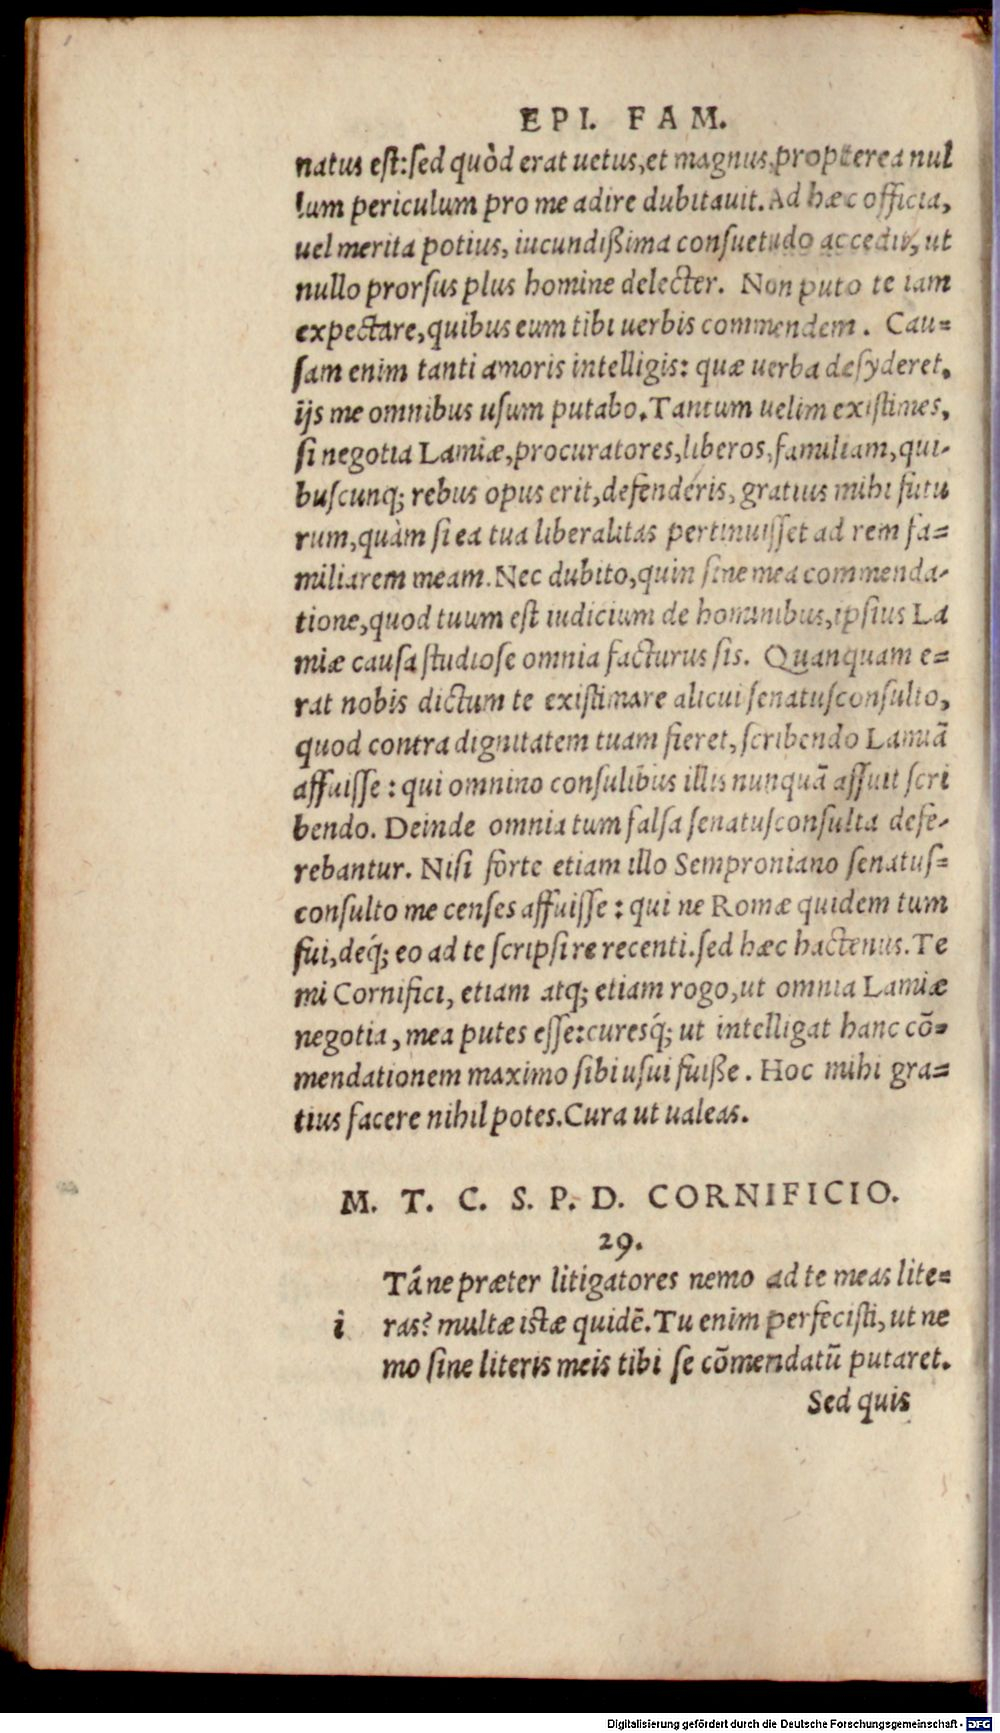 EPI. FAM.
natus est: sed quòd erat uetus, et magnus, propterea nul
lum periculum pro me adire dubitauit. Ad hæc officia,
uel merita potius, iucundißima consuetudo accedit, ut
nullo prorsus plus homine delecter. Non puto te iam
expectare, quibus eum tibi uerbis commendem. Cau=
sam enim tanti amoris intelligis: quæ uerba desyderet,
ijs me omnibus usum putabo. Tantum uelim existimes,
si negotia Lamiæ, procuratores, liberos, familiam, qui-
buscunq; rebus opus erit, defenderis, gratius mihi futu
rum, quàm si ea tua liberalitas pertinuisset ad rem fa=
miliarem meam. Nec dubito, quin sine mea commenda-
tione, quod tuum est iudicium de hominibus, ipsius La
miæ causa studiose omnia facturus sis. Quanquam e=
rat nobis dictum te existimare alicui senatusconsulto,
quod contra dignitatem tuam fieret, scribendo Lamiã
affuisse: qui omnino consulibus illis nunquã affuit scri
bendo. Deinde omnia tum falsa senatusconsulta defe-
rebantur. Nisi forte etiam illo Semproniano senatus=
consulto me censes affuisse: qui ne Romæ quidem tum
fui, deq́; eo ad te scripsi re recenti. sed hæc hactenus. Te
mi Cornifici, etiam atq; etiam rogo, ut omnia Lamiæ
negotia, mea putes esse: curesq́; ut intelligat hanc cõ=
mendationem maximo sibi usui fuiße. Hoc mihi gra=
tius facere nihil potes. Cura ut ualeas.
M. T. C. S. P. D. CORNIFICIO.
29.
Tá ne præter litigatores nemo ad te meas lite=
i ras? multæ istæ quidẽ. Tu enim perfecisti, ut ne
mo sine literis meis tibi se cõmendatũ putaret.
Sed quis
Digitalisierung gefördert durch die Deutsche Forschungsgemeinschaft - DFG